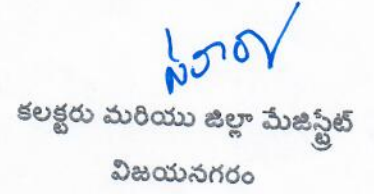 కలక్టరు మరియు జిల్లా మేజిస్ట్రేట్
విజయనగరం